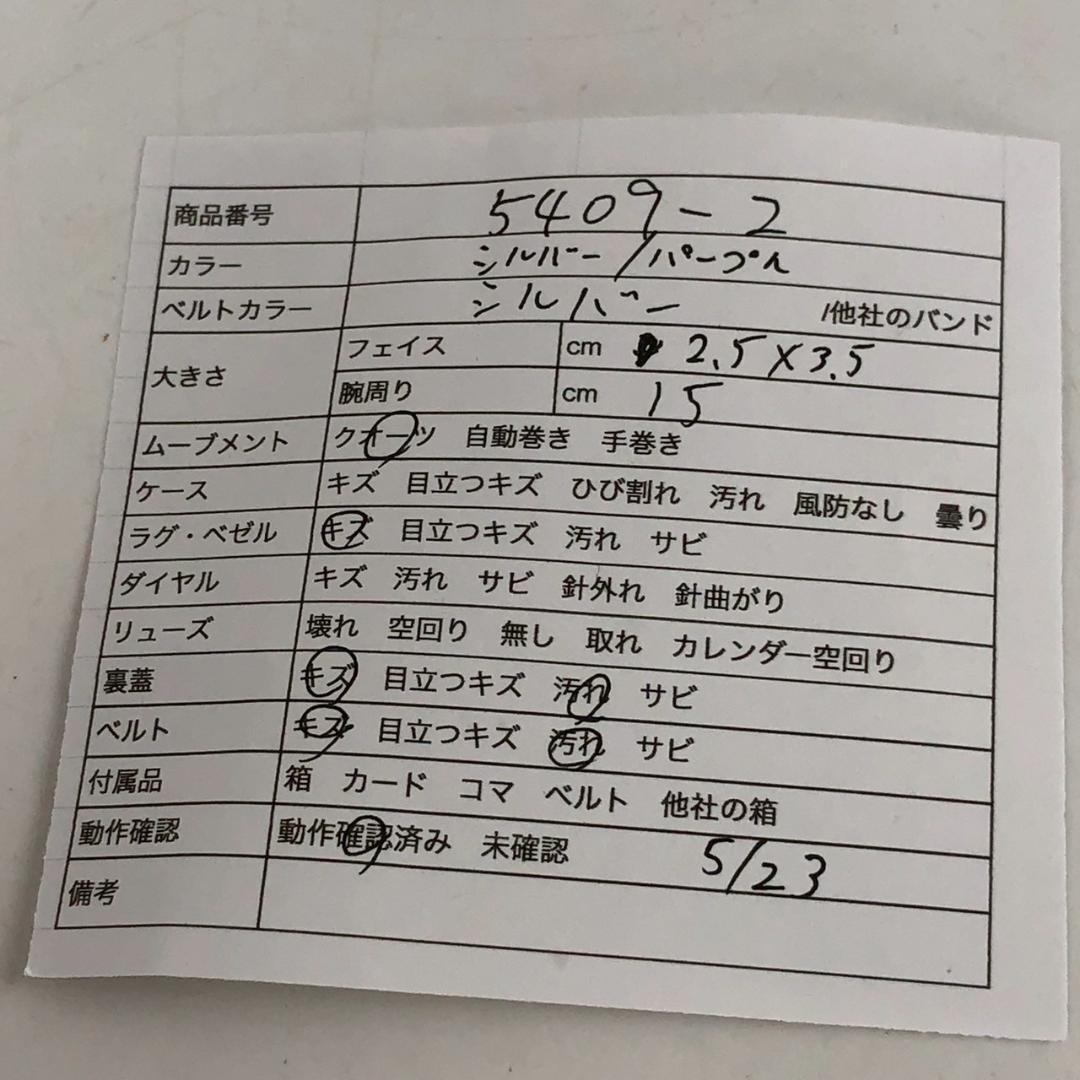 商品番号 5409-2
カラー シルバー/パープル
ベルトカラー シルバー /他社のバンド
大きさ フェイス cm 2.5×3.5
腕周り cm 15
ムーブメント クオーツ 自動巻き 手巻き
ケース キズ 目立つキズ ひび割れ 汚れ 風防なし 曇り
ラグ・ベゼル キズ 目立つキズ 汚れ サビ
ダイヤル キズ 汚れ サビ 針外れ 針曲がり
リューズ 壊れ 空回り 無し 取れ カレンダー空回り
裏蓋 キズ 目立つキズ 汚れ サビ
ベルト キズ 目立つキズ 汚れ サビ
付属品 箱 カード コマ ベルト 他社の箱
動作確認 動作確認済み 未確認 5/23
備考